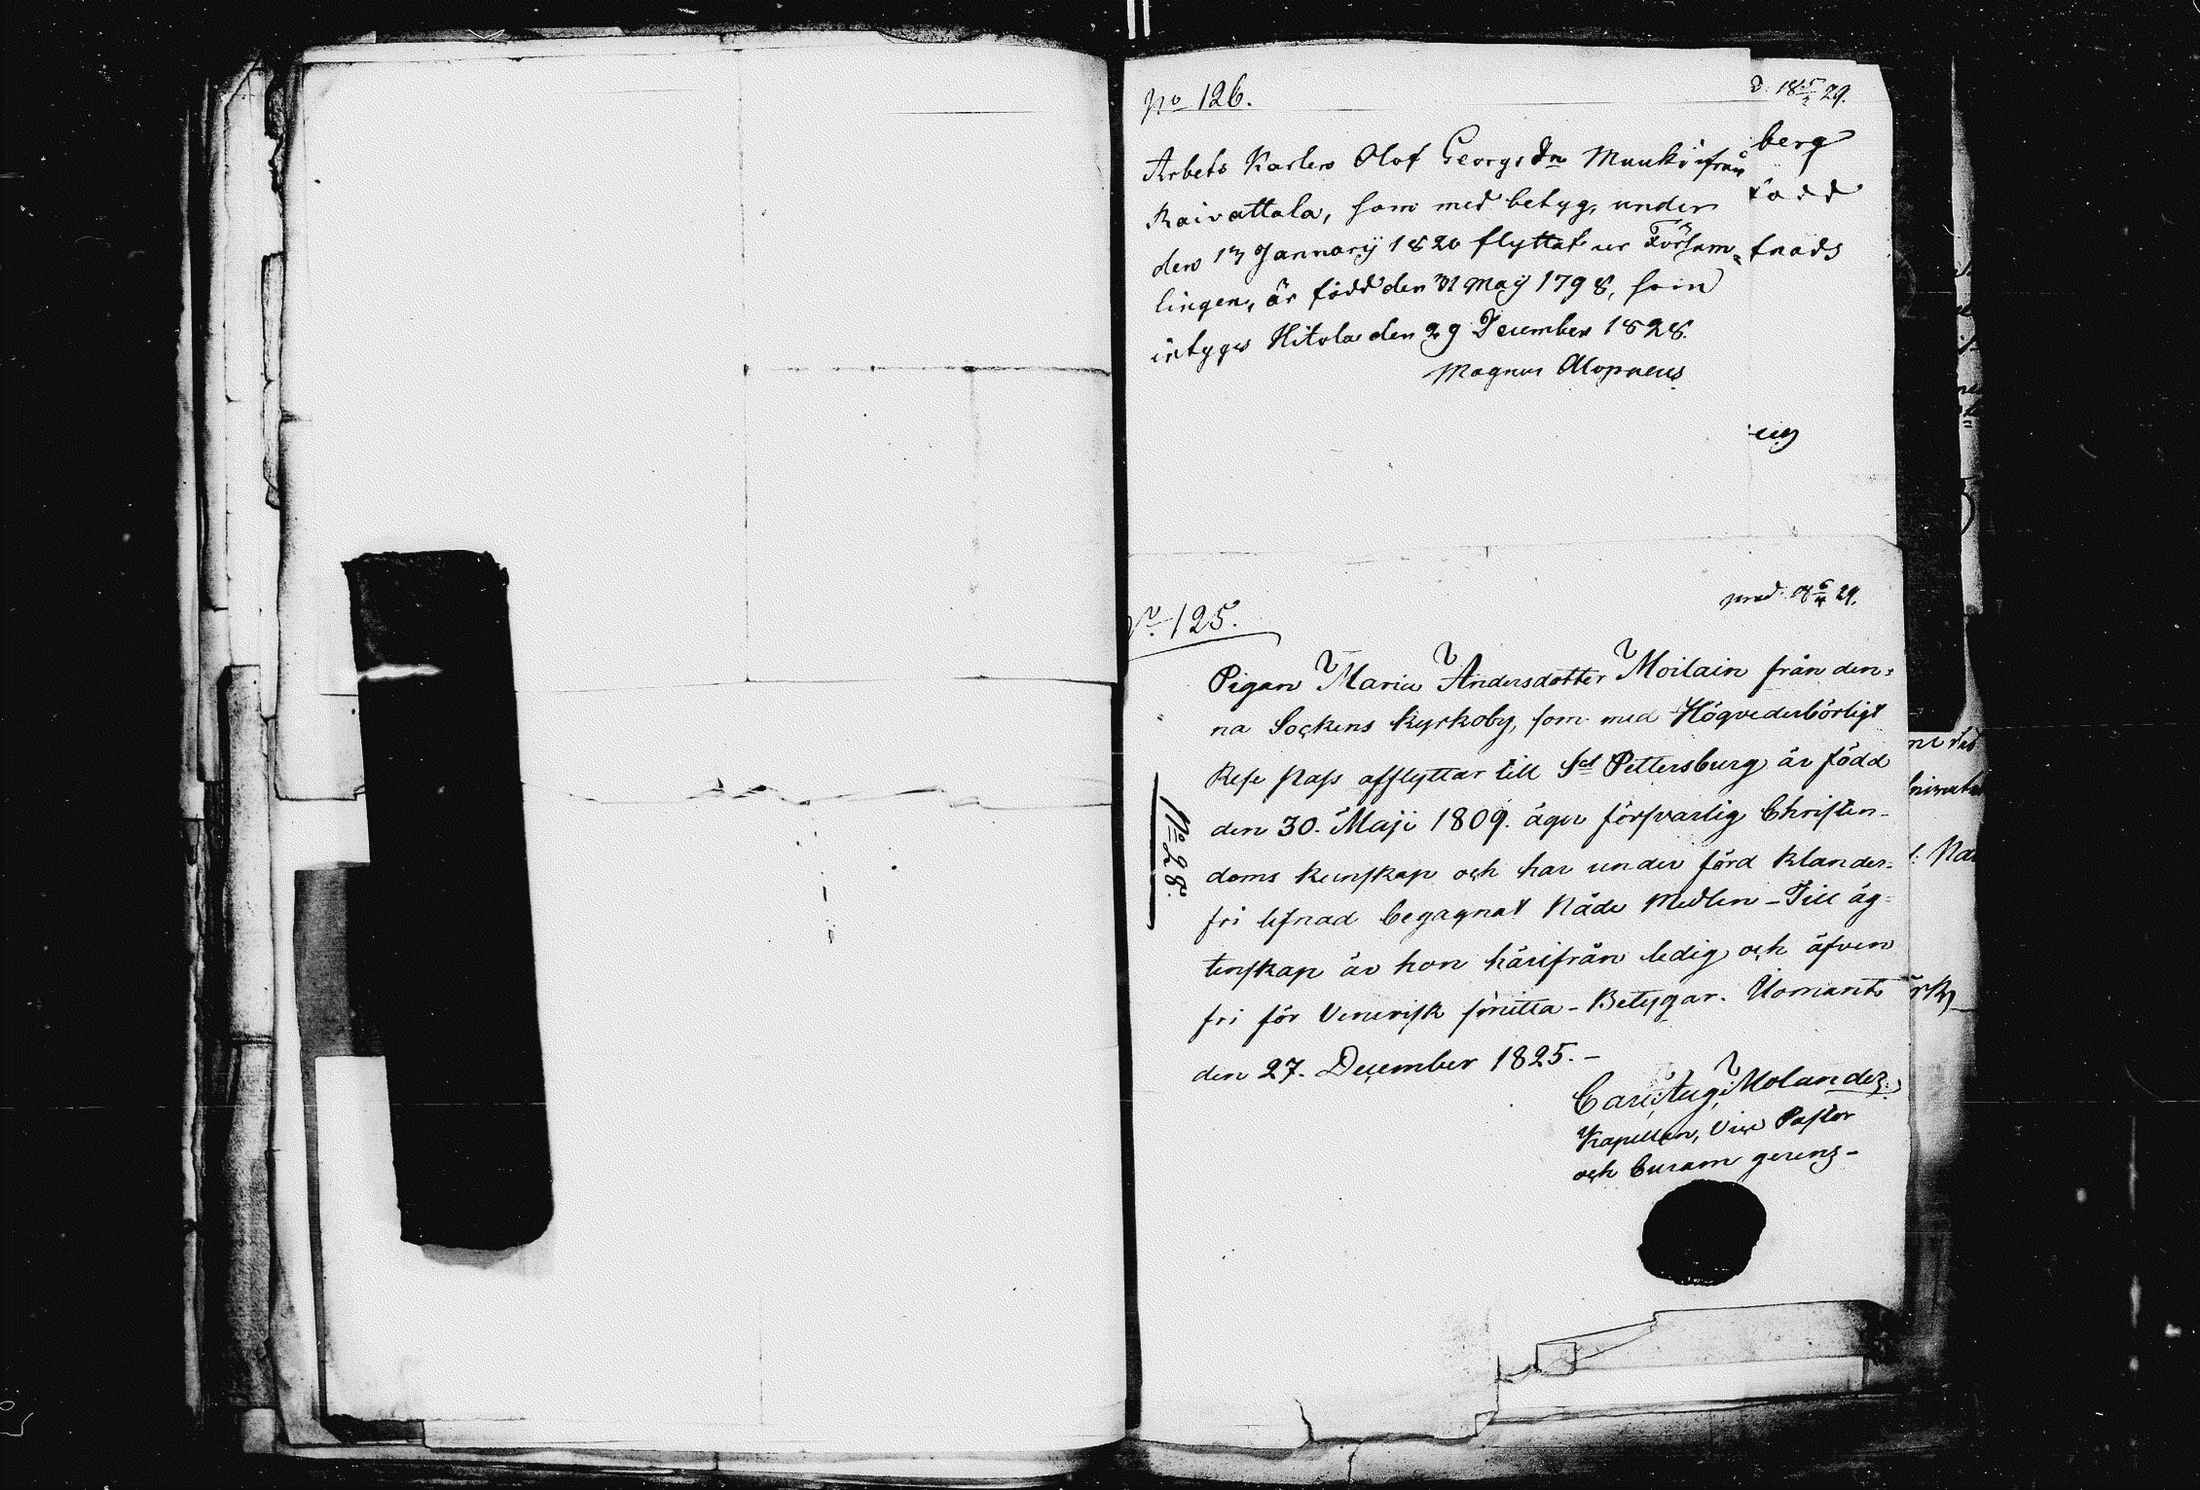 No 126.
Arbets Karlen Olof Georgsdn Muuki från
Raivattala, som med betyg, under
den 13 Januarij 1820 flyttat ur Församlingen, är född den 31 Maij 1798, som
intygas Hitola den 29 December 1828.
Magnus Alopaeus
d. 18 5/4 29.
berg
född
tnads
eus
prod. 18 6/4 29.
No 125.
Pigan Maria Andersdotter Moilain från den-
na Sockens Kyrkoby, som med Högvederbörligt
Rese Pass afflyttar till Sct Pettersburg är född
den 30. Maji 1809. äger försvarlig Christen-
doms kunskap och har under förd klander-
fri lefnad begagnat Nåde Medlen - Till äg-
tenskap är hon härifrån ledig och äfven
fri för Venerisk smitta - Betygar. Ilomants
den 27. December 1825. -
Carl Aug. Molander.
Kapellan, Vice Pastor
och Curam gerens -
No 28.